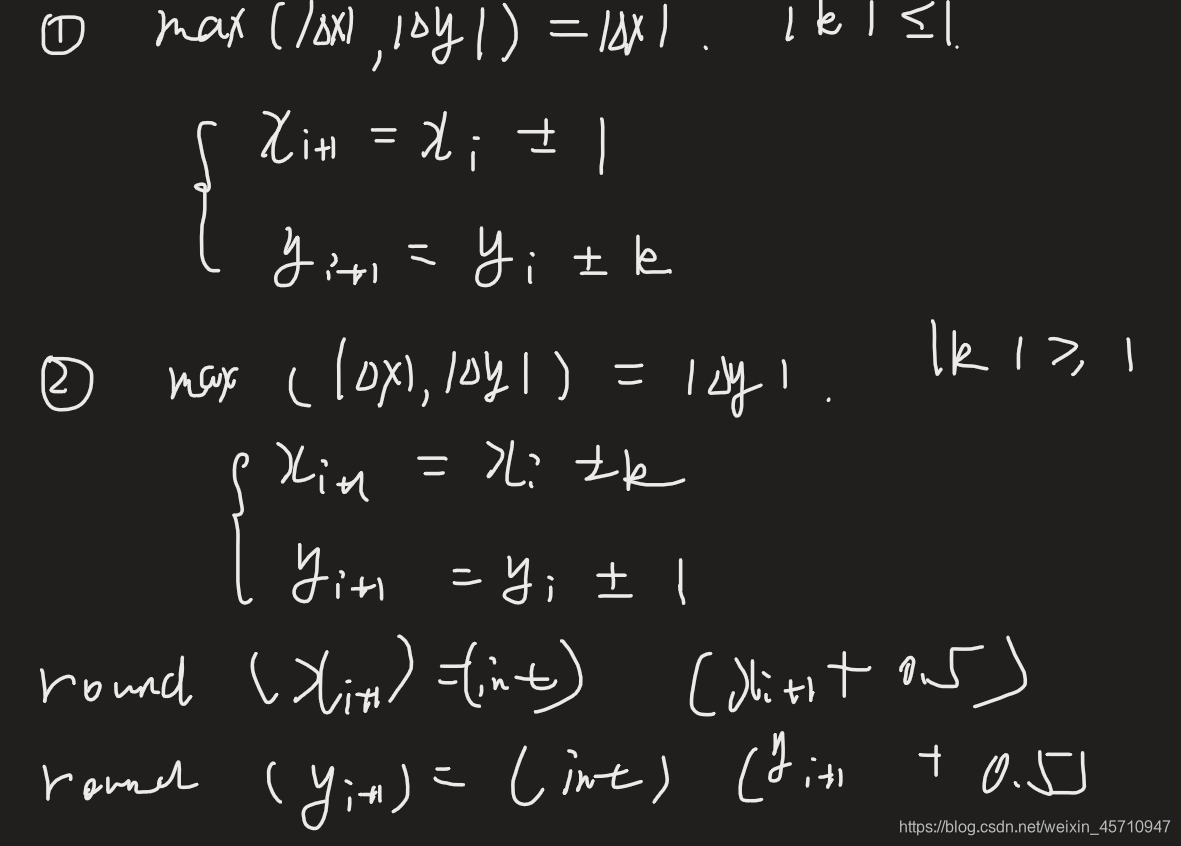 ① max (|Δx|, |Δy|) = |Δx|. |k| ≤ 1.
{ x_{i+1} = x_i ± 1
y_{i+1} = y_i ± k
② max (|Δx|, |Δy|) = |Δy|. |k| ≥ 1
{ x_{i+1} = x_i ± k
y_{i+1} = y_i ± 1
round (x_{i+1}) = (int) (x_{i+1} + 0.5)
round (y_{i+1}) = (int) (y_{i+1} + 0.5)
https://blog.csdn.net/weixin_45710947